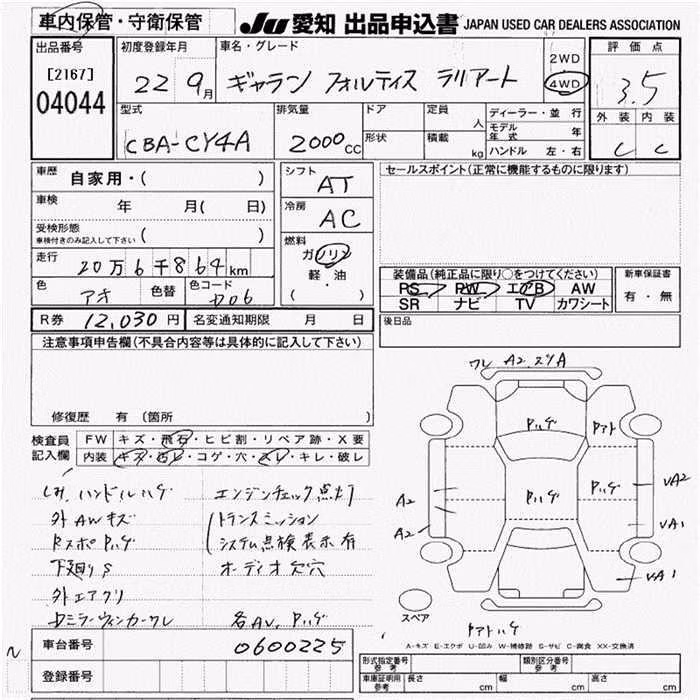 車内保管・守衛保管
JU 愛知 出品申込書 JAPAN USED CAR DEALERS ASSOCIATION
出品番号
[2167]
04044
初度登録年月
22 9月
車名・グレード
ギャラン フォルティス ラリアート
2WD
4WD
評価点
3.5
外装 内装
C C
型式
CBA-CY4A
排気量
2000cc
ドア
形状
定員 人
積載 kg
ディーラー・並行
モデル年式 年
ハンドル 左・右
車歴
自家用・( )
車検
年 月( 日)
受検形態
車検付きのみ記入して下さい ( )
走行
20万6千864km
色
アオ
色替
色コード
D06
シフト
AT
冷房
AC
燃料
ガソリン
軽・油
( ・ )
セールスポイント(正常に機能するものに限ります)
装備品(純正品に限り○をつけてください)
PS PW エアB AW
SR ナビ TV カワシート
新車保証書
有・無
後日品
R券 12,030円 名変通知期限 月 日
注意事項申告欄(不具合内容等は具体的に記入して下さい)
修復歴 有 (箇所 )
検査員記入欄
FW キズ・飛石・ヒビ割・リペア跡・X要
内装 キズ・汚レ・コゲ・穴・スレ・キレ・破レ
しみ、ハンドルハゲ
外AWキズ
RスポPハゲ
下廻りS
外エアクリ
エンジンチェック点灯
トランスミッション
システム点検表示有
オーディオ欠穴
各AV、Pハゲ
ワレ A2 スリA
Pハゲ
Pハゲ
Pハゲ
A2
A2
VA2
VA1
VA1
スペア
A-キズ E-エクボ U-凹み W-補修跡 S-サビ C-腐食 XX-交換済
車台番号
0600225
登録番号
型式指定番号 参考
類別区分番号 参考
車庫証明用 参考
長さ cm
幅 cm
高さ cm